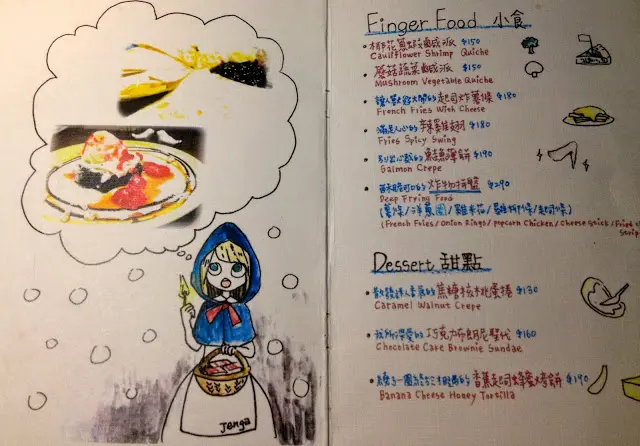 Finger Food 小食
花菜鮮蝦鹹派 $150
Cauliflower Shrimp Quiche
蘑菇蔬菜鹹派 $150
Mushroom Vegetable Quiche
起司炸薯條 $180
French Fries With Cheese
滿足人心的辣雞翅 $180
Fries Spicy Swing
鮭魚薄餅 $190
Salmon Crepe
炸物拼盤 $290
Deep Frying Food
(薯條/洋蔥圈/雞米花/雞柳條/起司條)
(French Fries/Onion Rings/popcorn Chicken/Cheese Stick/Fried
Strip
Dessert 甜點
焦糖核桃蛋捲 $130
Caramel Walnut Crepe
巧克力布朗尼聖代 $160
Chocolate Cake Brownie Sundae
香蕉起司蜂蜜烤餅 $190
Banana Cheese Honey Tortilla
Jenga